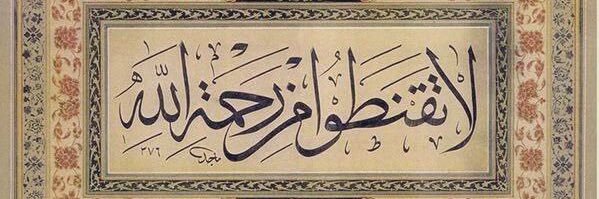 لا تقنطوا من رحمة الله
١٣٧٦